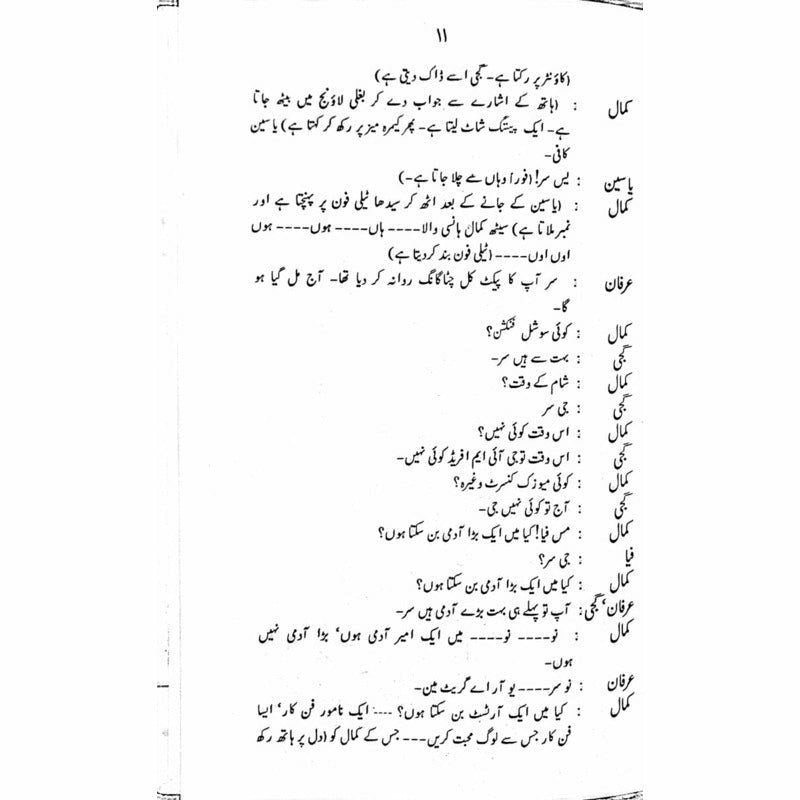 ۱۱
(کاؤنٹر پر رکتا ہے۔ گجی اسے ڈاک دیتی ہے)
کمال : (ہاتھ کے اشارے سے جواب دے کر بغلی لاؤنج میں بیٹھ جاتا
ہے۔ ایک پیننگ شاٹ لیتا ہے۔ پھر کیمرہ میز پر رکھ کر کہتا ہے) یاسین
کافی۔
یاسین : یس سر! (فوراً وہاں سے چلا جاتا ہے۔)
کمال : (یاسین کے جانے کے بعد اٹھ کر سیدھا ٹیلی فون پر پہنچتا ہے اور
نمبر ملاتا ہے) سیٹھ کمال ہانسی والا۔۔۔۔ ہاں۔۔۔۔ ہوں۔۔۔۔ ہوں
اوں اوں۔۔۔۔ (ٹیلی فون بند کر دیتا ہے)
عرفان : سر آپ کا پیکٹ کل چٹاگانگ روانہ کر دیا تھا۔ آج مل گیا ہو
گا۔
کمال : کوئی سوشل فنکشن؟
گجی : بہت سے ہیں سر۔
کمال : شام کے وقت؟
گجی : جی سر
کمال : اس وقت کوئی نہیں؟
گجی : اس وقت تو جی آئی ایم افریڈ کوئی نہیں۔
کمال : کوئی میوزک کنسرٹ وغیرہ؟
گجی : آج تو کوئی نہیں جی۔
کمال : مس فیا! کیا میں ایک بڑا آدمی بن سکتا ہوں؟
فیا : جی سر؟
کمال : کیا میں ایک بڑا آدمی بن سکتا ہوں؟
عرفان، گجی : آپ تو پہلے ہی بہت بڑے آدمی ہیں سر۔
کمال : نو۔۔۔۔ نو۔۔۔۔ میں ایک امیر آدمی ہوں، بڑا آدمی نہیں
ہوں۔
عرفان : نو سر۔۔۔۔ یو آر اے گریٹ مین۔
کمال : کیا میں ایک آرٹسٹ بن سکتا ہوں؟ ۔۔۔۔ ایک نامور فن کار، ایسا
فن کار جس سے لوگ محبت کریں۔۔۔۔ جس کے کمال کو (دل پر ہاتھ رکھ